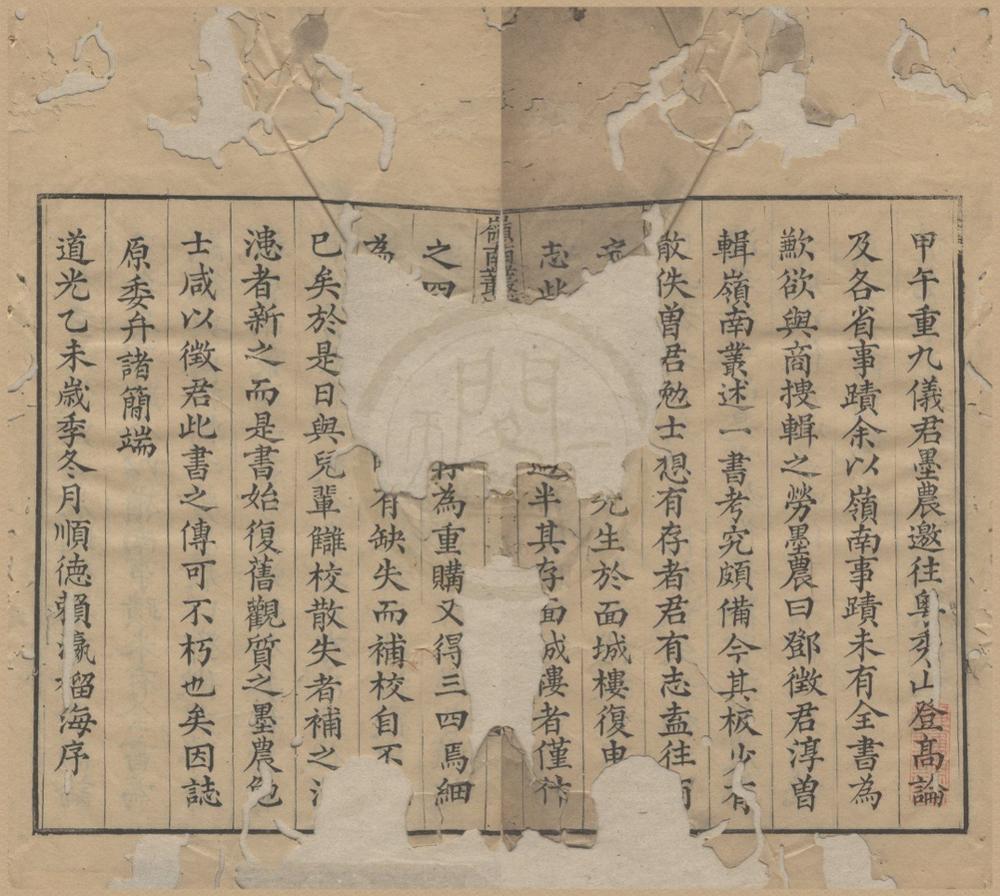 甲午重九儀君墨農邀往粤秀山登髙論
及各省事蹟余以嶺南事蹟未有全書為
歉欲與商搜輯之勞墨農曰鄧徵君淳曽
輯嶺南叢述一書考究頗備今其板少有
散佚曽君勉士想有存者君有志盍往
先生於面城樓復申
志此過半其存面成漊者僅
嶺南叢
之四為重購又得三四焉細
為有缺失而補校自不
巳矣於是日與兒輩讎校散失者補之
漶者新之而是書始復舊觀質之墨農勉
士咸以徵君此書之傳可不朽也矣因誌
原委弁諸簡端
道光乙未歳季冬月順徳賴瀛榴海序